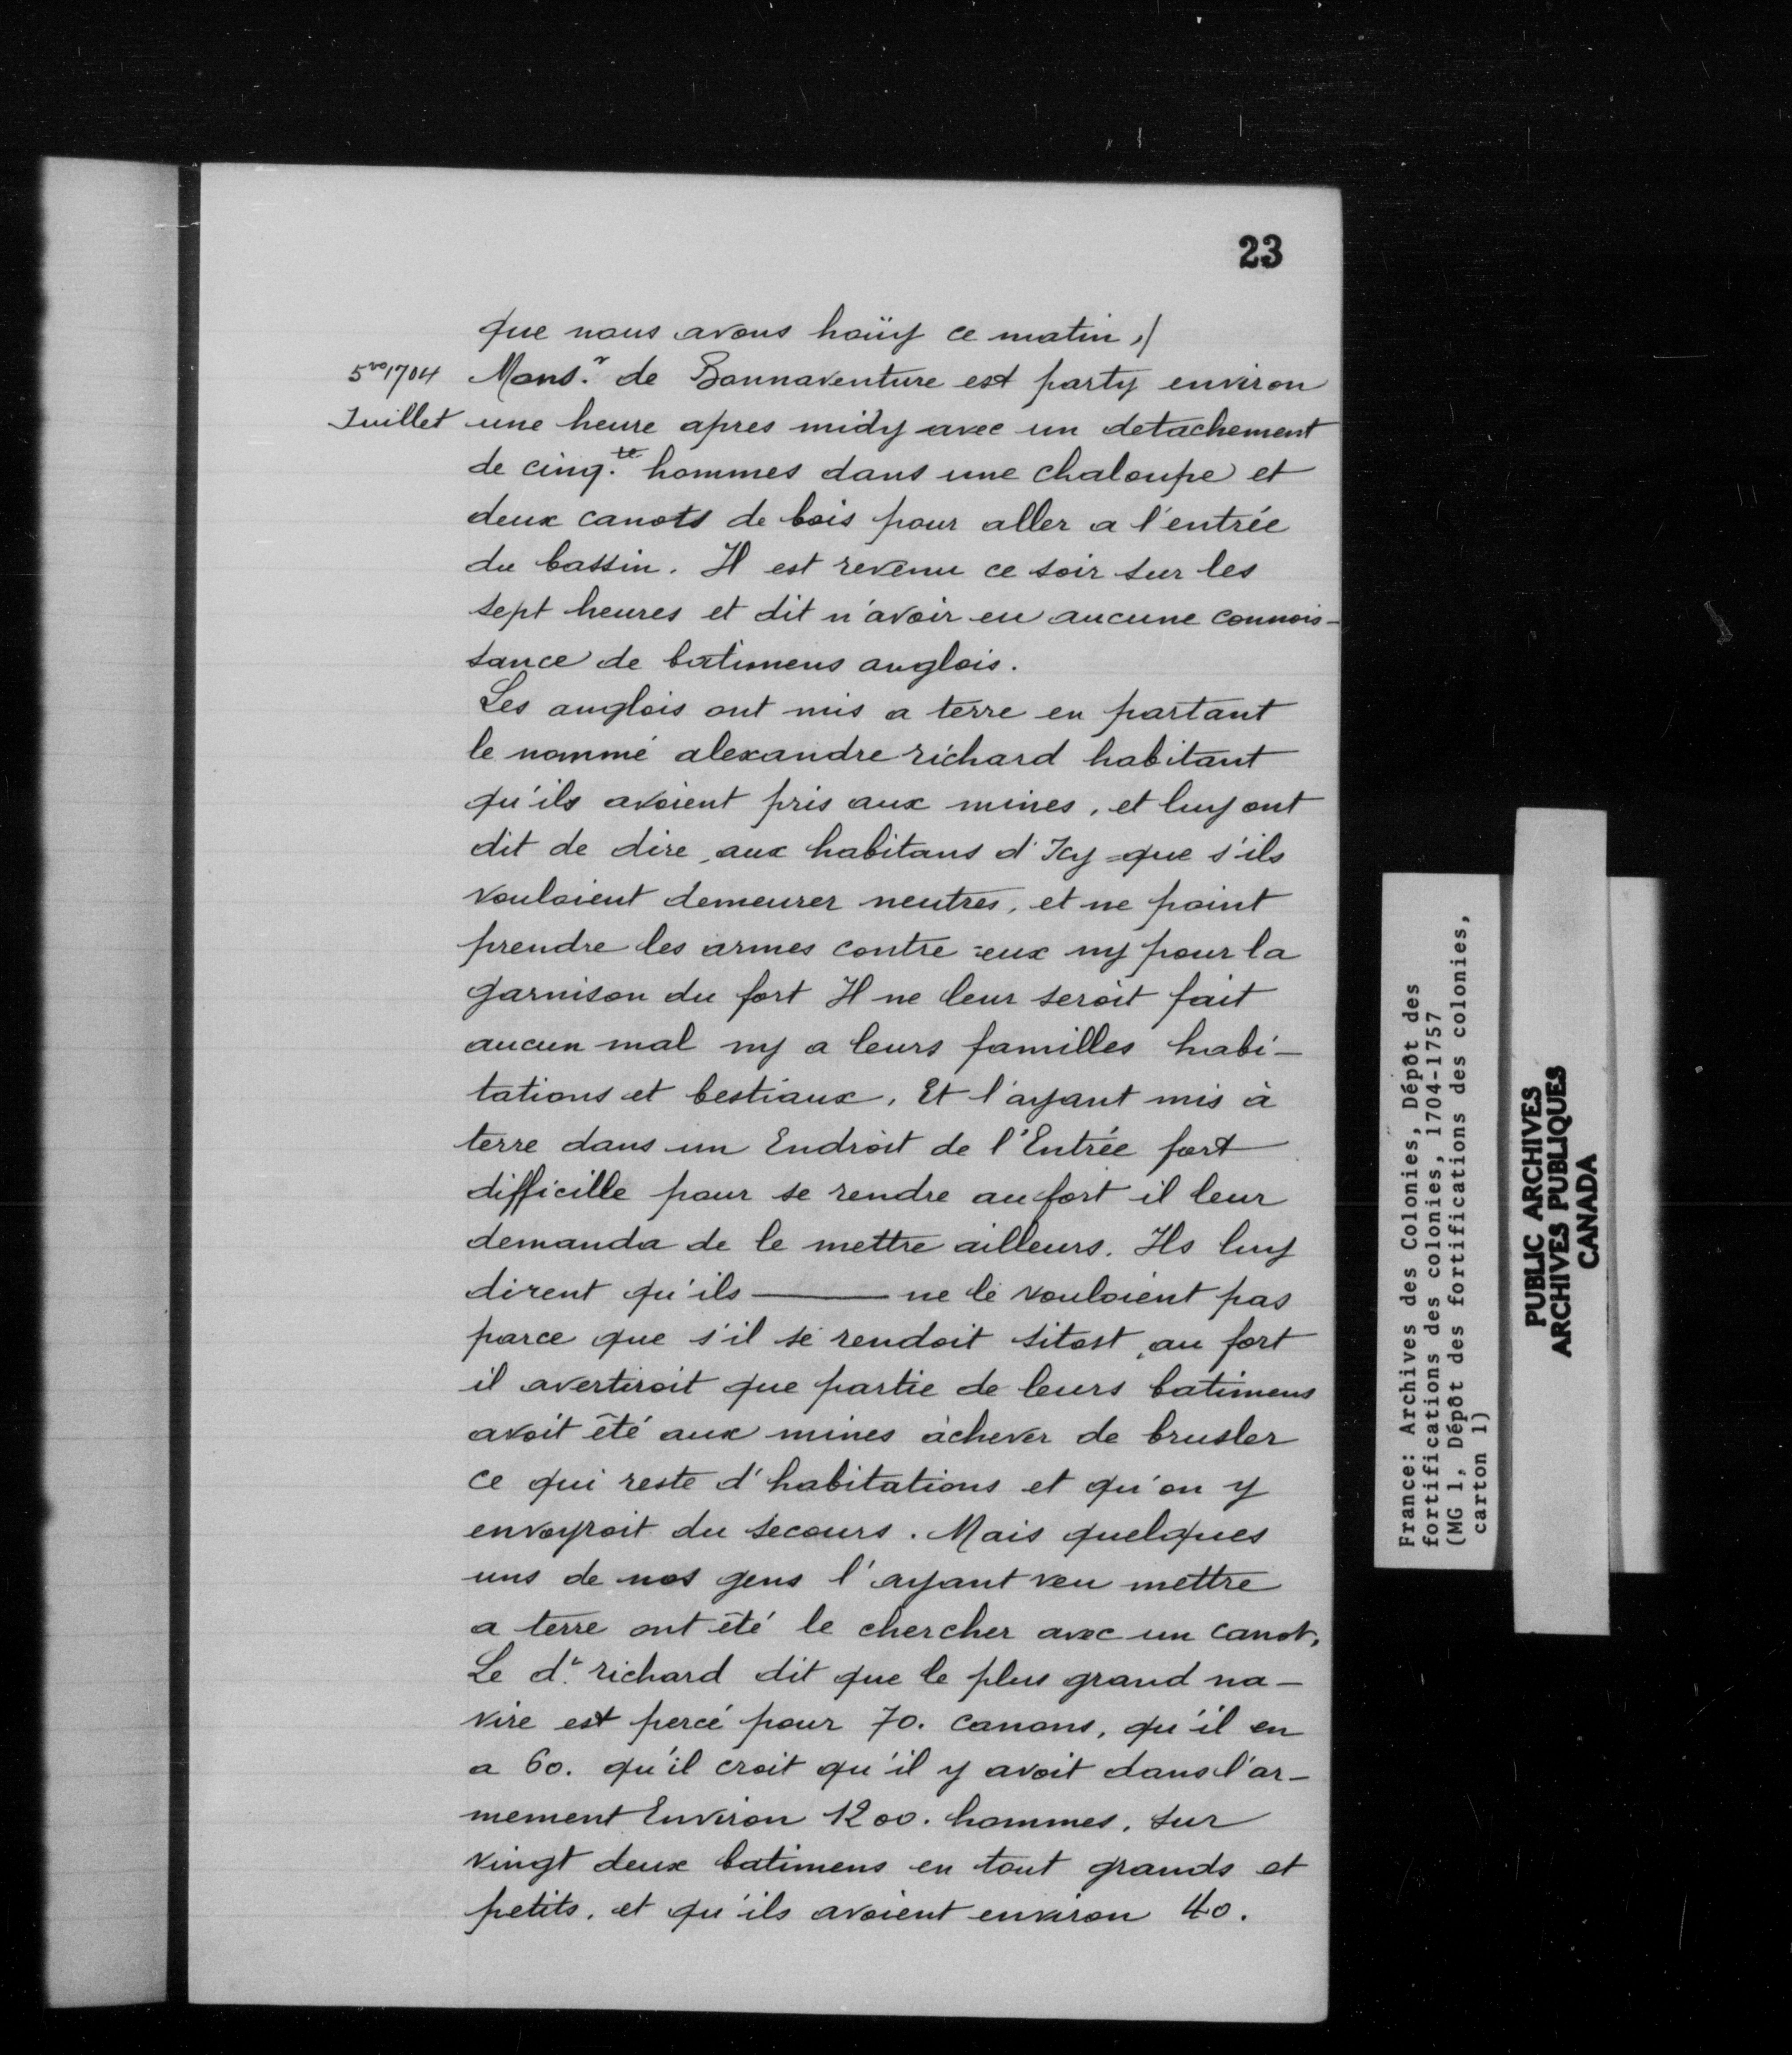 23
que nous avons hoüy ce matin ,/
5ro 1704 Mons.r de Bonnaventure est party environ
Juillet une heure apres midy avec un detachement
de cinq.te hommes dans une chaloupe et
deux canots de bois pour aller a l'entrée
du bassin. Il est revenu ce soir sur les
sept heures et dit n'avoir eu aucune connois-
sance de batimens anglois.
Les anglois ont mis a terre en partant
le nommé alexandre richard habitant
qu'ils avoient pris aux mines, et luy ont
dit de dire aux habitans d'Icy que s'ils
vouloient demeurer neutres, et ne point
prendre les armes contre eux ny pour la
garnison du fort Il ne leur seroit fait
aucun mal ny a leurs familles habi-
tations et bestiaux. Et l'ayant mis à
terre dans un Endroit de l'Entrée fort
difficille pour se rendre au fort il leur
demanda de le mettre ailleurs. Ils luy
dirent qu'ils ——— ne le vouloient pas
parce que s'il se rendoit sitost au fort
il avertiroit que partie de leurs batimens
avoit été aux mines achever de brusler
ce qui reste d'habitations et qu'on y
envoyroit du secours. Mais quelques
uns de nos gens l'ayant veu mettre
a terre ont été le chercher avec un canot.
Le d.t richard dit que le plus grand na-
vire est percé pour 70. canons, qu'il en
a 60. qu'il croit qu'il y avoit dans l'ar-
mement Environ 1200. hommes, sur
vingt deux batimens en tout grands et
petits, et qu'ils avoient environ 40.
France: Archives des Colonies, Dépôt des
fortifications des colonies, 1704-1757
(MG 1, Dépôt des fortifications des colonies,
carton 1)
PUBLIC ARCHIVES
ARCHIVES PUBLIQUES
CANADA